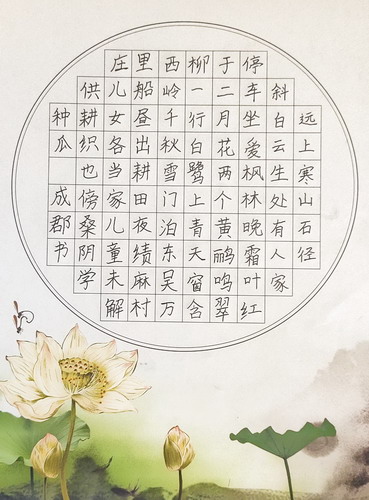 远上寒山石径
斜白云生处有人家
停车坐爱枫林晚霜叶红
于二月花两个黄鹂鸣翠
柳一行白鹭上青天窗含
西岭千秋雪门泊东吴万
里船昼出耕田夜绩麻村
庄儿女各当家儿童未解
供耕织也傍桑阴学
种瓜 成郡书